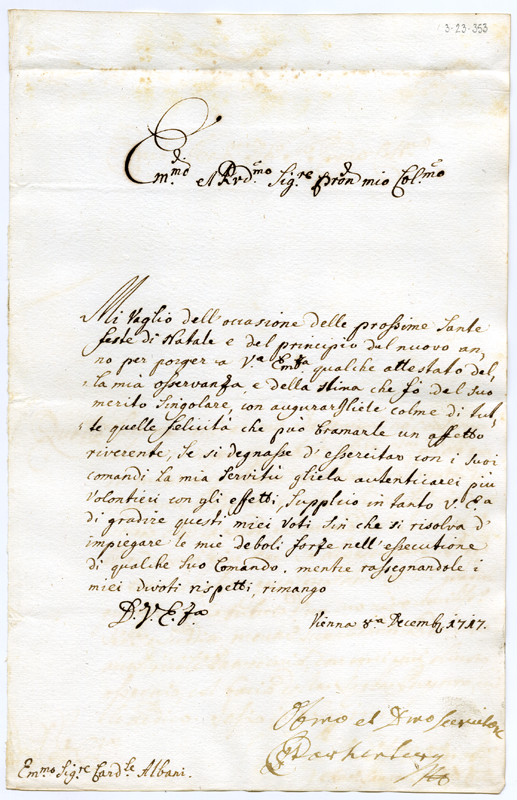 3-23-353
Em.mo et Rvd.mo Sig.re Pron mio Col.mo
Mi vaglio dell'occasione delle prossime Sante
feste di Natale e del principio del nuovo an,
no per porger a V.a Em.za qualche attestato del,
la mia osservanza, e della stima che fò del suo
merito singolare, con augurarglicle colme di tut,
te quelle felicità che può bramarle un affetto
riverente, Se si degnasse d'essercitar con i suoi
comandi la mia servitù gliela autenticarei più
volontieri con gli effetti, Supplico in tanto V. Eza
di gradire questi miei voti sin che si risolva d'
impiegare le mie deboli forze nell'essecutione
di qualche suo Comando, mentre rassegnandole i
miei divoti rispetti, rimango
D. V. E.za
Vienna 8.a Decemb. 1717.
Obmo et Dmo servitore
Em.mo Sig.re Card.le Albani.